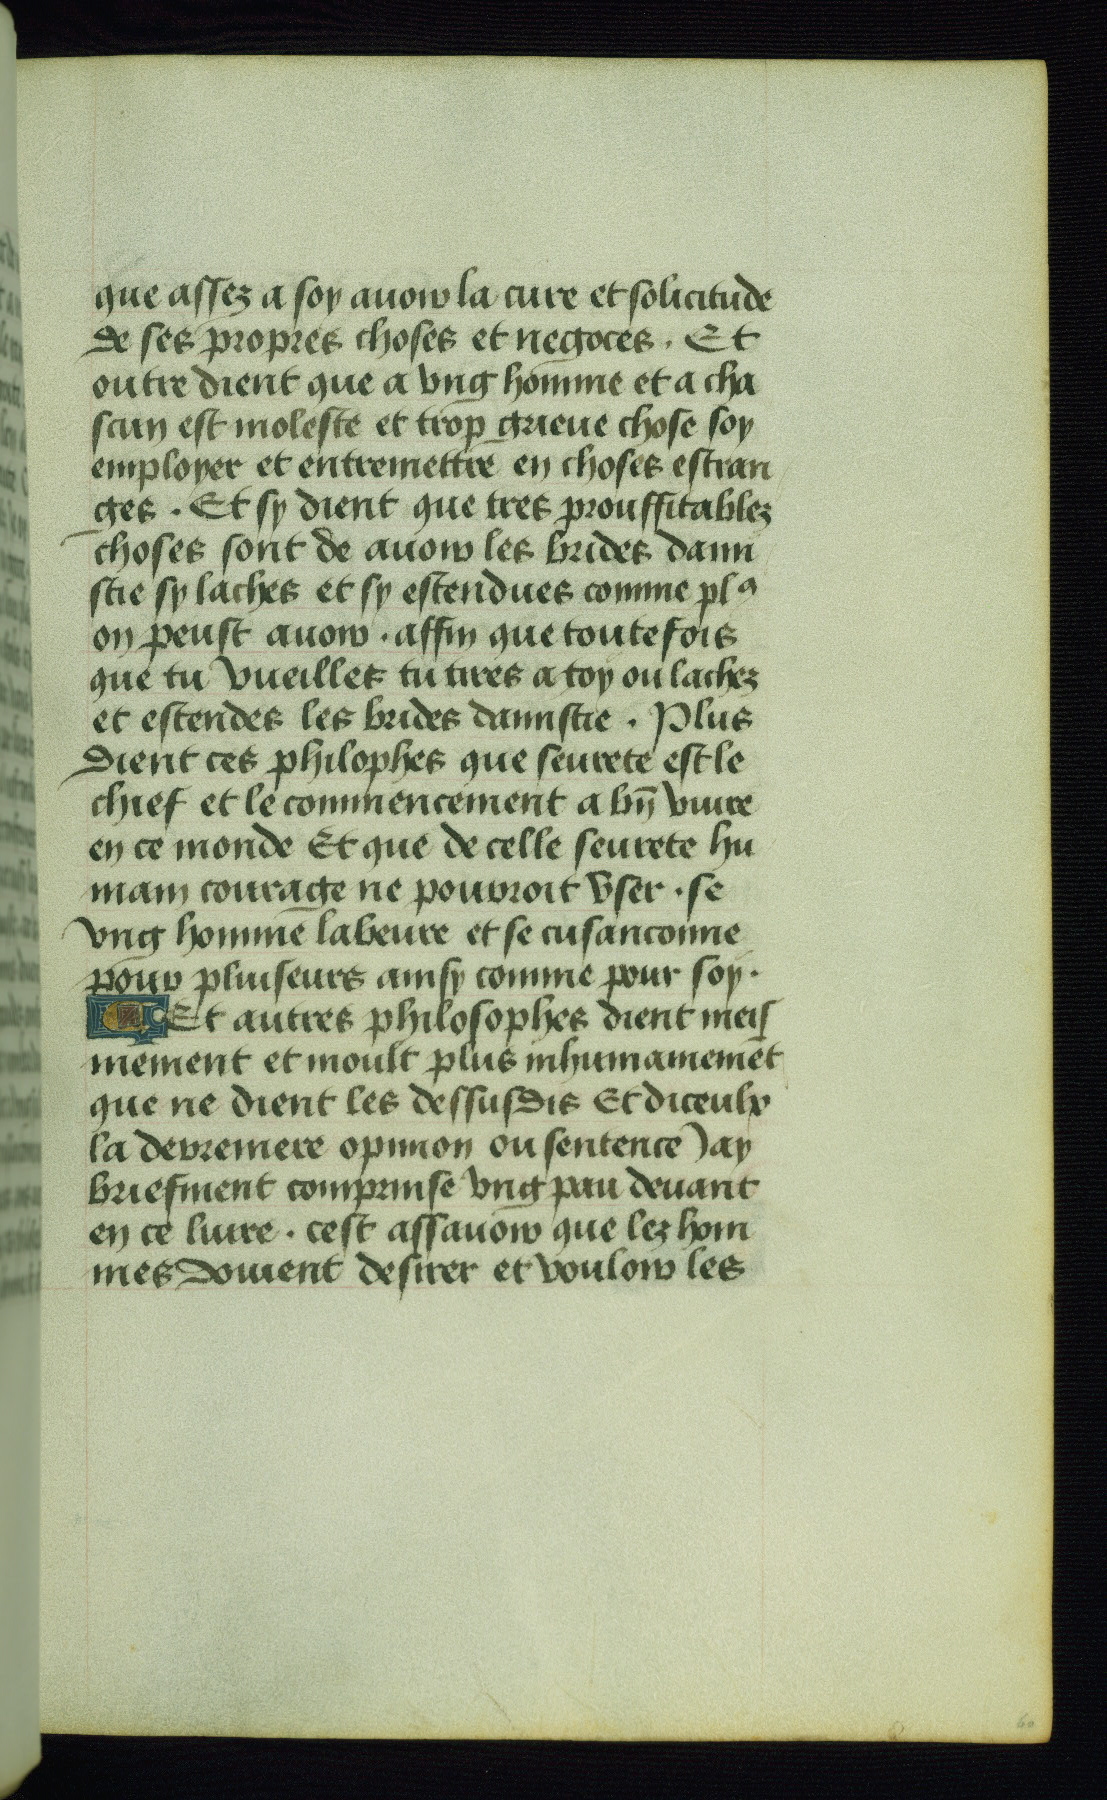 que assez a soy auoir la cure et solicitude
de ses propres choses et negoces. Et
outre dient que a vng homme et a cha
scun est moleste et trop grieue chose soy
employer et entremettre en choses estran
ges. Et sy dient que tres prouffitablez
choses sont de auoir les brides dami
stie sy laches et sy estendues comme plꝰ
on peust auoir. affin que toutefois
que tu vueilles tu tires a toy ou lachez
et estendes les brides damistie. Plus
dient ces philophes que seurete est le
chief et le commencement a bn̄ viure
en ce monde Et que de celle seurete hu
main courage ne pourroit vser. se
vng homme labeure et se cusanconne
pour pluiseurs ainsy comme pour soy.
Et autres philosophes dient meis
mement et moult plus inhumainemēt
que ne dient les dessusdis Et diceulx
la derreniere opinion ou sentence Jay
briefment comprinse vng pau deuant
en ce liure. cest assauoir que lez hom
mes doiuent desirer et vouloir les
60